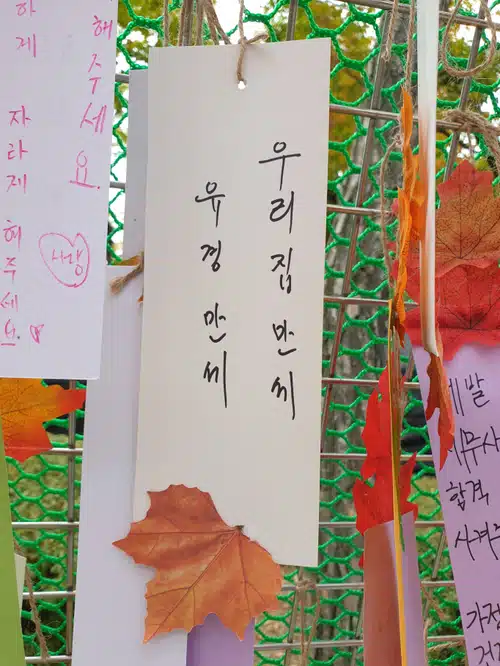 해주세요
하게 자라게 해주세요
사랑
우리집 만세
유경 만세
제발
합격
시켜주